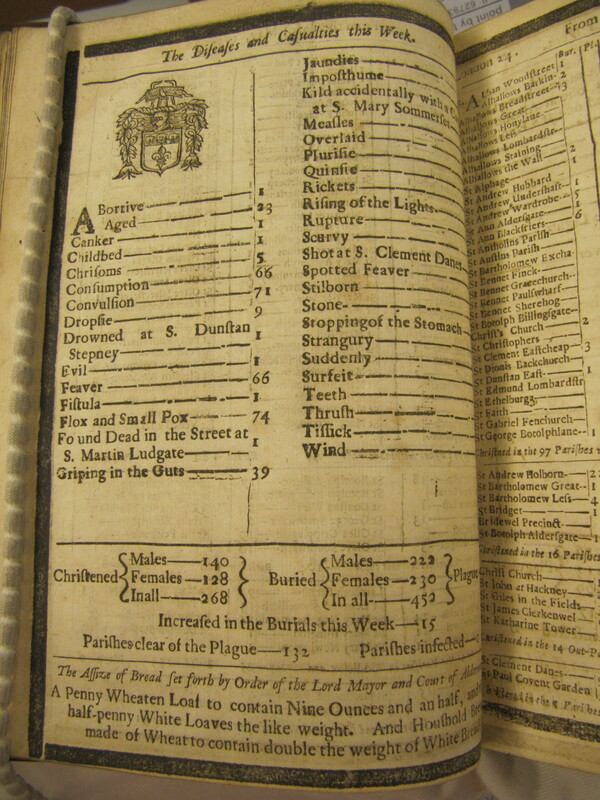 The Diſeaſes and Caſualties this Week.
ABortive 1
Aged 23
Canker 1
Childbed 1
Chriſoms 5
Conſumption 66
Convulſion 71
Dropſie 9
Drowned at S. Dunſtan
Stepney 1
Evil 1
Feaver 66
Fiſtula 1
Flox and Small Pox 74
Found Dead in the Street at
S. Martin Ludgate 1
Griping in the Guts 39
Jaundies
Impoſthume
Kild accidentally with a
at S. Mary Sommerſet
Meaſles
Overlaid
Pluriſie
Quinſie
Rickets
Riſing of the Lights
Rupture
Scurvy
Shot at S. Clement Danes
Spotted Feaver
Stilborn
Stone
Stopping of the Stomach
Strangury
Suddenly
Surfeit
Teeth
Thruſh
Tiſſick
Wind
Chriſtened
Males 140
Females 128
In all 268
Buried
Males 222
Females 230
In all 452
Plague
Increaſed in the Burials this Week 15
Pariſhes clear of the Plague 132 Pariſhes infected
The Aſſize of Bread ſet forth by Order of the Lord Mayor and Court of
A Penny Wheaten Loaf to contain Nine Ounces and an half, and
half-penny White Loaves the like weight. And Houſhold
made of Wheat to contain double the weight of White
From
Bur.
Alban Woodſtreet 1
Alhallows Barkin 2
Alhallows Breadſtreet
Alhallows Great
Alhallows Honylane
Alhallows Leſs
Alhallows Lombardſtr
Alhallows Staining 2
Alhallows the Wall 1
St Alphage
St Andrew Hubbard
St Andrew Underſhaft 1
St Andrew Wardrobe 5
St Ann Alderſgate 1
St Ann Blackfriers 6
St Antholins Pariſh
St Auſtins Pariſh
St Bartholomew Excha
St Bennet Finck
St Bennet Gracechurch
St Bennet Paulſwharf
St Bennet Sherehog
St Botolph Billingſgate
Chriſt's Church 2
St Chriſtophers
St Clement Eaſtcheap 3
St Dionis Backchurch
St Dunſtan Eaſt 1
St Edmund Lombardſtr
St Ethelburg
St Faith
St Gabriel Fenchurch
St George Botolphlane 1
Chriſtned in the 97 Pariſhes
St Andrew Holborn
St Bartholomew Great 1
St Bartholomew Leſs 4
St Bridget 1
Bridewel Precinct
St Botolph Alderſgate
Chriſtned in the 16 Pariſhes
Chriſt Church
St John at Hackney
St Giles in the Fields
St James Clerkenwel
St Katharine Tower
Chriſtned in the 14 Out-
St Clement Danes
St Paul Covent Garden